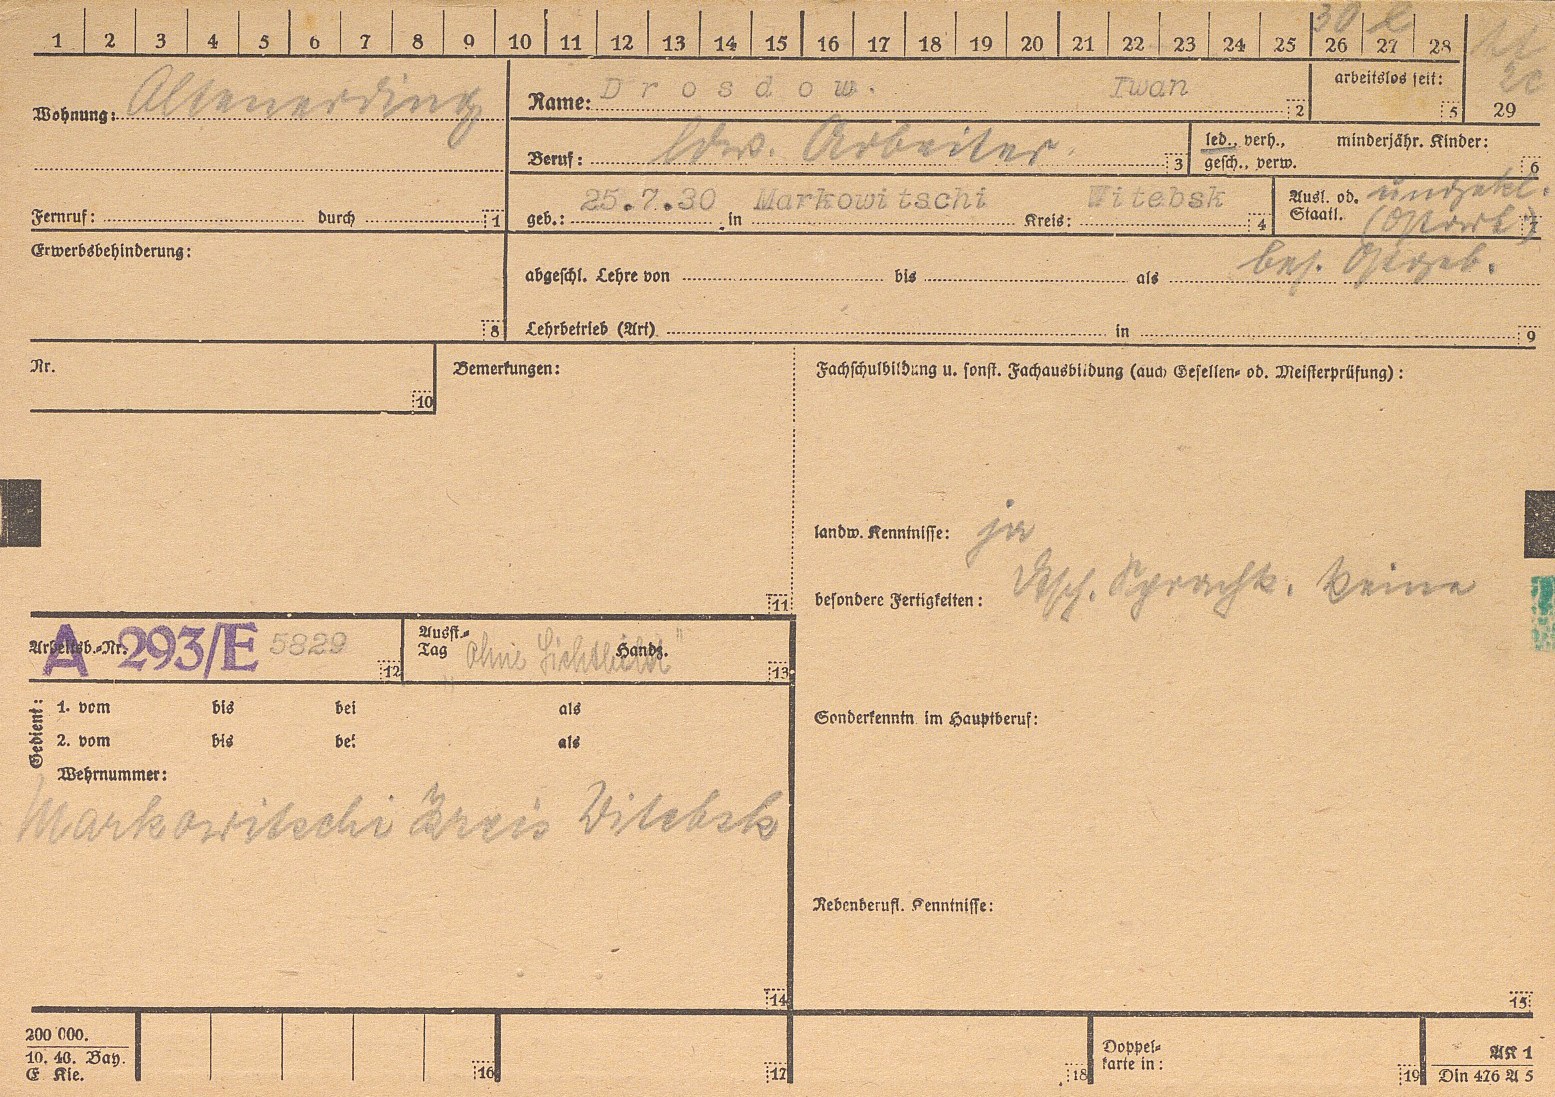 1 2 3 4 5 6 7 8 9 10 11 12 13 14 15 16 17 18 19 20 21 22 23 24 25 26 27 28 29
30
Wohnung: Altenerding
Name: Drosdow. Iwan 2
arbeitslos seit: 5
Beruf: ldw. Arbeiter 3
led., verh., gesch., verw.
minderjähr. Kinder: 6
Fernruf: durch 1
geb.: 25.7.30 in Markowitschi Kreis: Witebsk 4
Ausl. od. Staatl. ungekl. (Ostarb.) 7
bes. Ostgeb.
Erwerbsbehinderung: 8
abgeschl. Lehre von bis als
Lehrbetrieb (Art) in 9
Nr. 10
Bemerkungen: 11
Fachschulbildung u. sonst. Fachausbildung (auch Gesellen- od. Meisterprüfung):
landw. Kenntnisse: ja
besondere Fertigkeiten: Dtsch. Sprachk. keine
Arbeitsb.-Nr. A 293/E 5829 12
Ausst.-Tag "Ohne Lichtbild" Handz. 13
Gedient:
1. vom bis bei als
2. vom bis bei als
Wehrnummer:
Markowitschi Kreis Witebsk
14
Sonderkenntn. im Hauptberuf:
Nebenberufl. Kenntnisse:
15
200 000.
10. 40. Bay.
E Kie.
16
17
18
Doppel-
karte in: 19
AK 1
Din 476 A 5